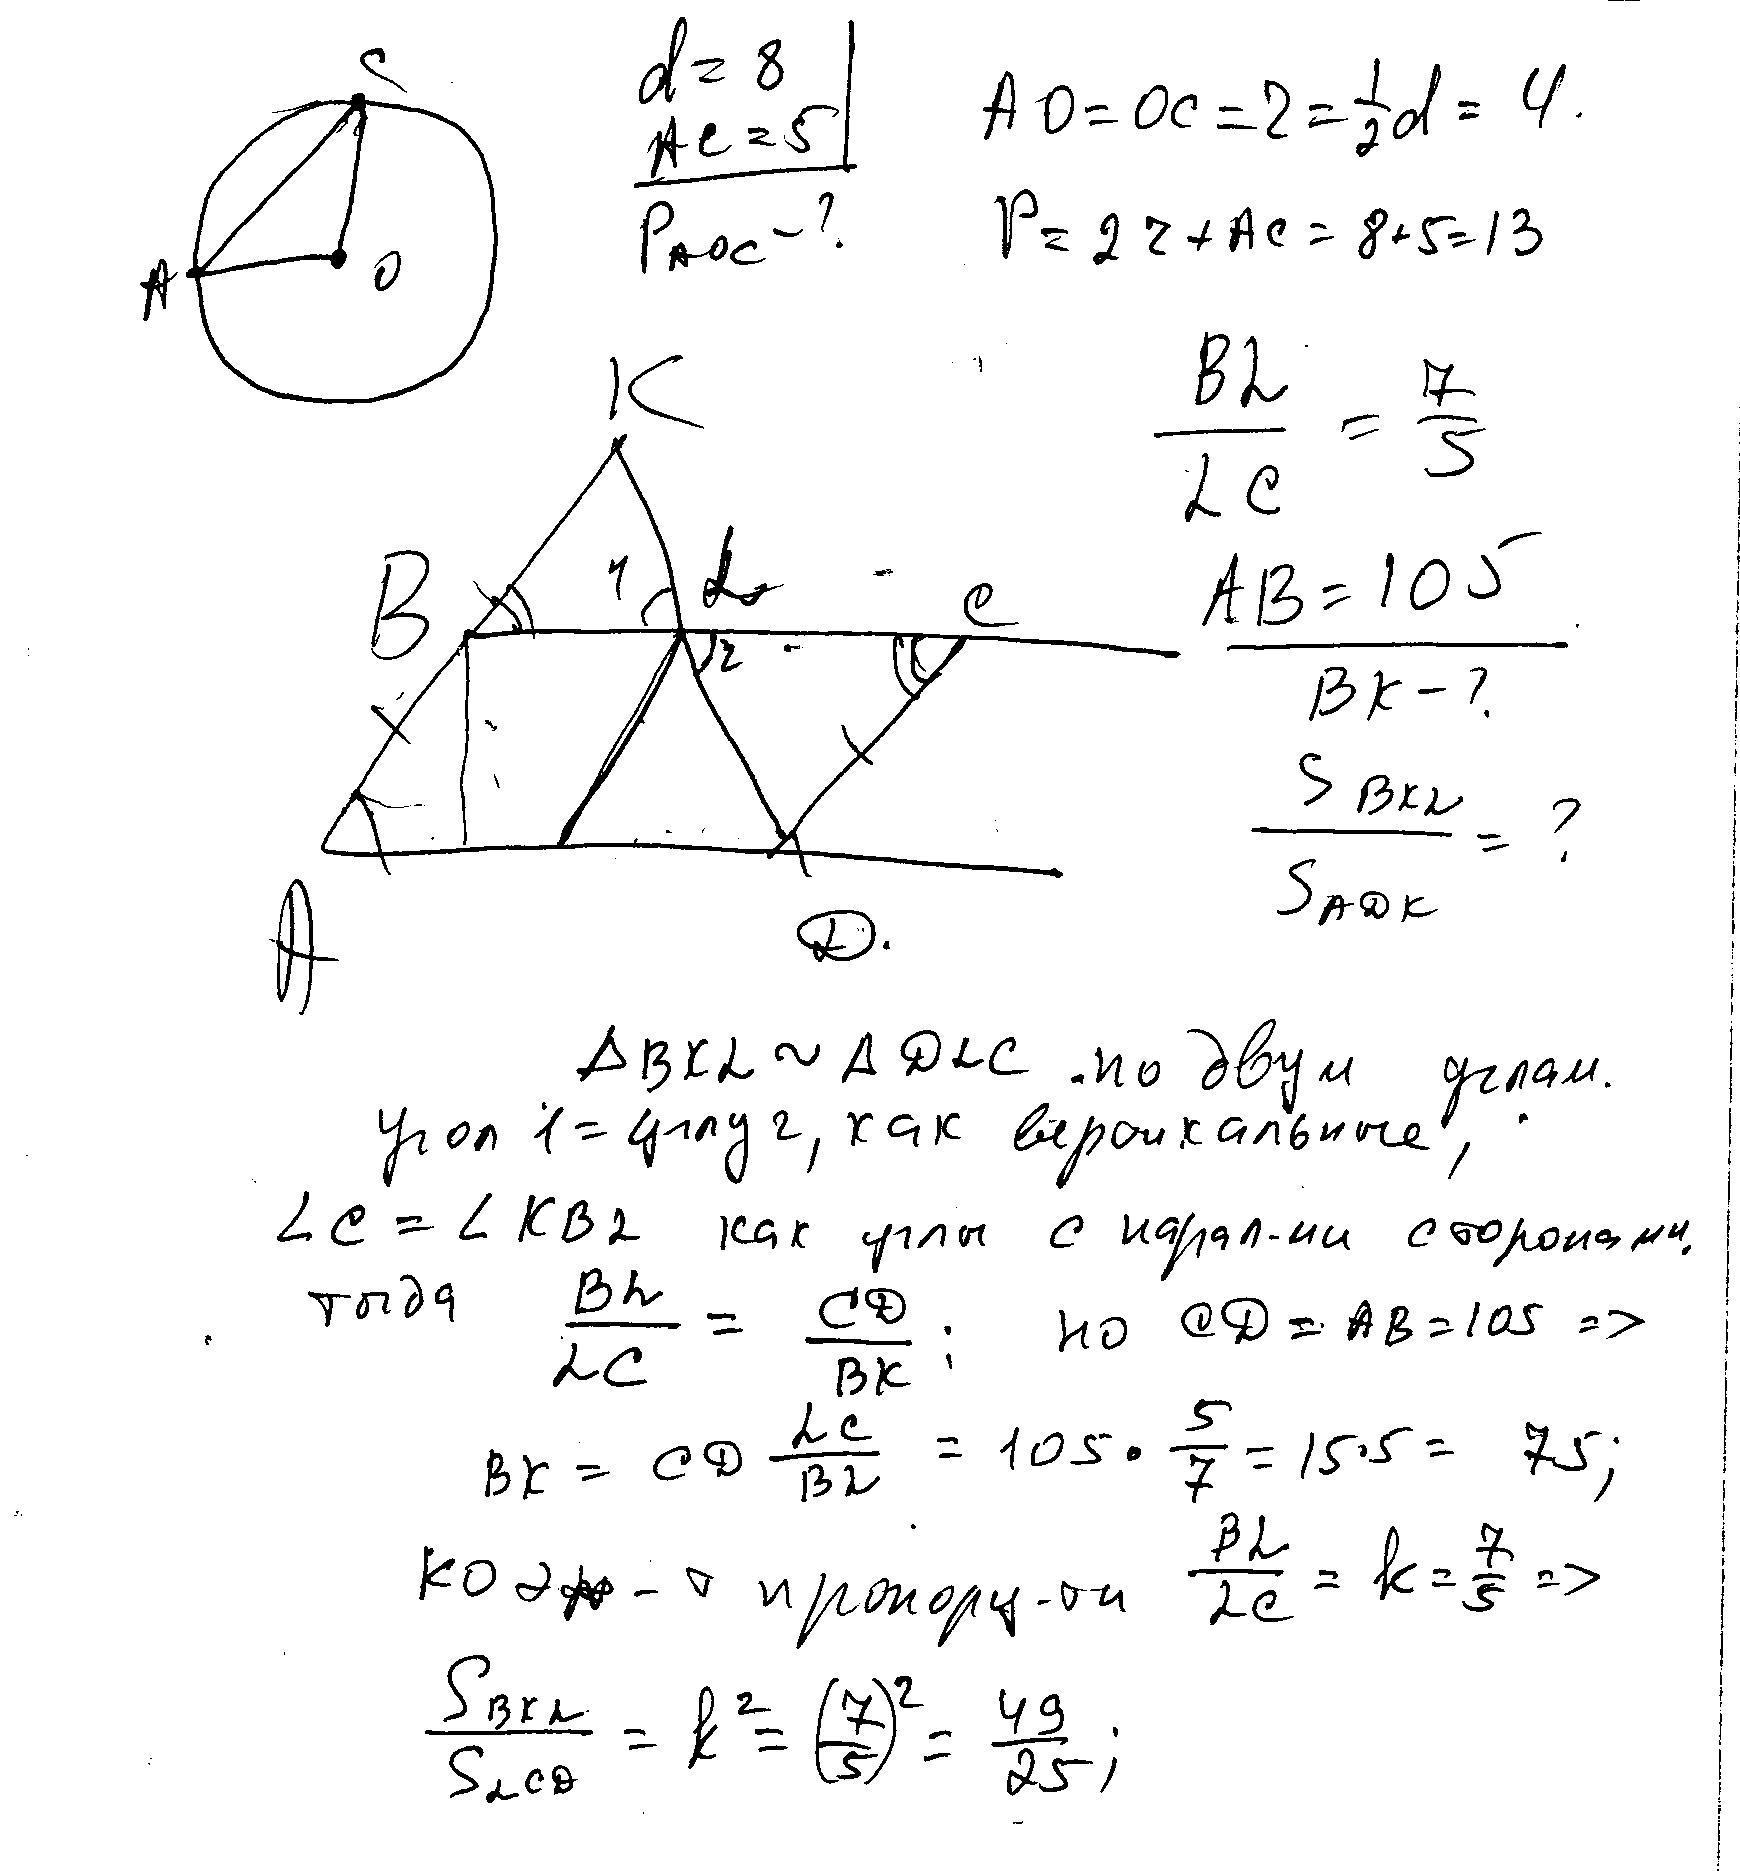 C
A
O
d = 8
AC = 5
P AOC - ?
AO = OC = r = 1/2 d = 4.
P = 2r + AC = 8 + 5 = 13
K
B
1
L
C
2
A
D.
BL/LC = 7/5
AB = 105
BK - ?
S BKL / S ADK = ?
Δ BKL ~ Δ DLC по двум углам.
Угол 1 = углу 2, как вертикальные,
∠C = ∠KBL как углы с парал-ми сторонами.
тогда BL/LC = CD/BK ; но CD = AB = 105 =>
BK = CD LC/BL = 105 · 5/7 = 15·5 = 75;
пропорц-ти BL/LC = k = 7/5 =>
S BKL / S LCD = k² = (7/5)² = 49/25 ;